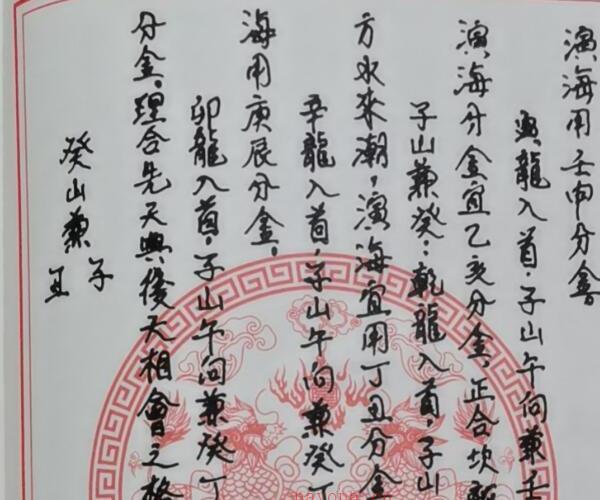 演海用壬申分金
龍入首，子山午向兼壬
演海分金宜乙亥分金，正合坎
子山兼癸：乾龍入首，子山
方水來潮，演海宜用丁丑分金
辛龍入首，子山午向兼癸丁
海用庚辰分金。
卯龍入首，子山午向兼癸丁
分金，理合先天與後天相會之格
癸山兼子
丑